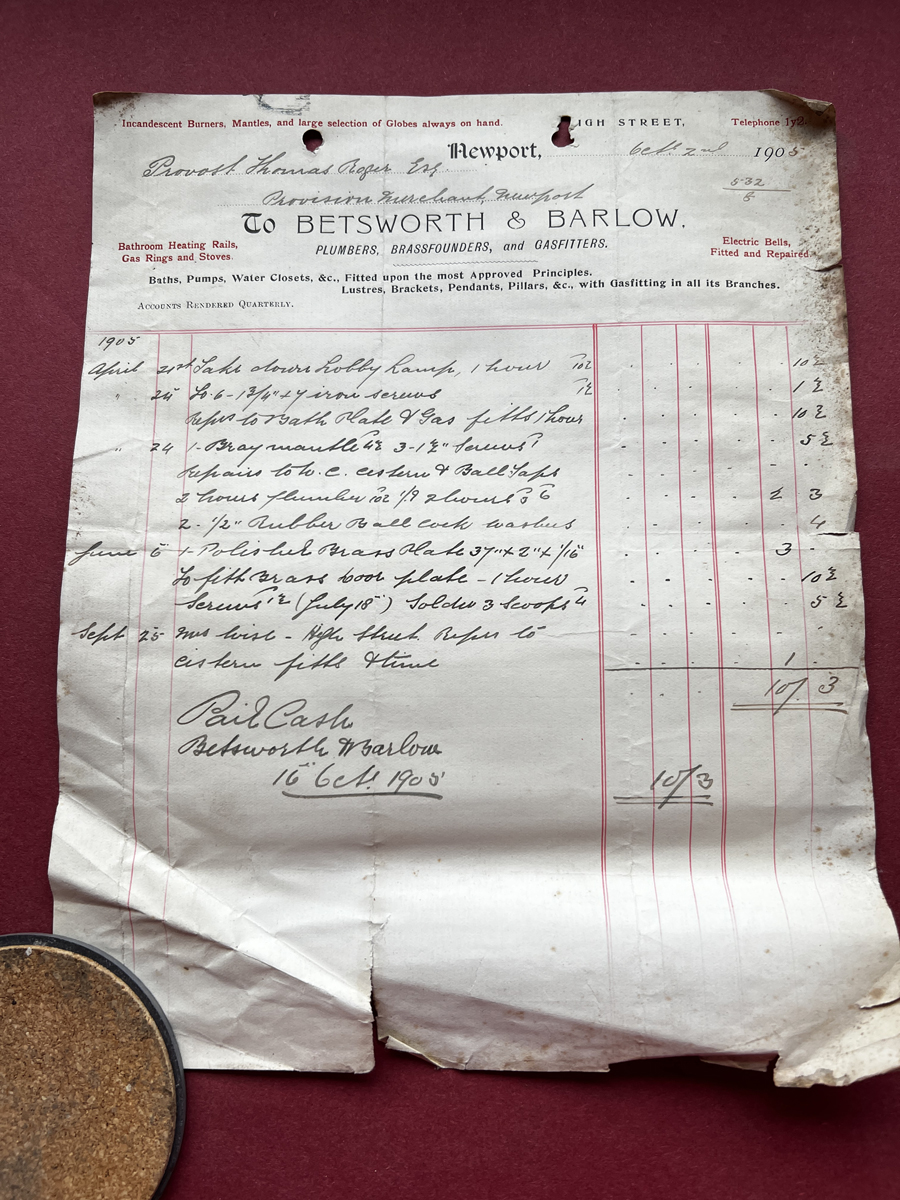 Incandescent Burners, Mantles, and large selection of Globes always on hand. IGH STREET, Telephone 1y2
Newport, Octr. 2nd 1905
Provost Thomas Roger Esq.
532
Provision Merchant, Newport
6
To BETSWORTH & BARLOW,
PLUMBERS, BRASSFOUNDERS, and GASFITTERS.
Bathroom Heating Rails, Electric Bells,
Gas Rings and Stoves. Fitted and Repaired.
Baths, Pumps, Water Closets, &c., Fitted upon the most Approved Principles.
Lustres, Brackets, Pendants, Pillars, &c., with Gasfitting in all its Branches.
ACCOUNTS RENDERED QUARTERLY.
1905
April 21st Take down Lobby Lamp, 1 hour 10½ 10½
" 24 To 6 - 1 3/4" x 7 iron screws 1½ 1½
Reprs to Bath Plate & Gas fitts 1 hour 10½
" 24 1 - Bray mantle 4½ 3 - 1½" Screws 1 5½
Repairs to W. C. cistern & Ball Taps
2 hours plumber 10½ 1/9 2 hours 6 2 3
2 - 1/2" Rubber Ball cock washers 4
June 6 1 - Polished Brass Plate 37" x 2" x 1/16" 3
To fitt Brass Door plate - 1 hour 10½
Screws 1½ (July 18) Solder 3 Scoops 4 5½
Sept 25 Mrs Wise - High Street. Reprs to
cistern fitts & time 1
10/. 3
Paid Cash
Betsworth & Barlow
16 Octr. 1905 10/3